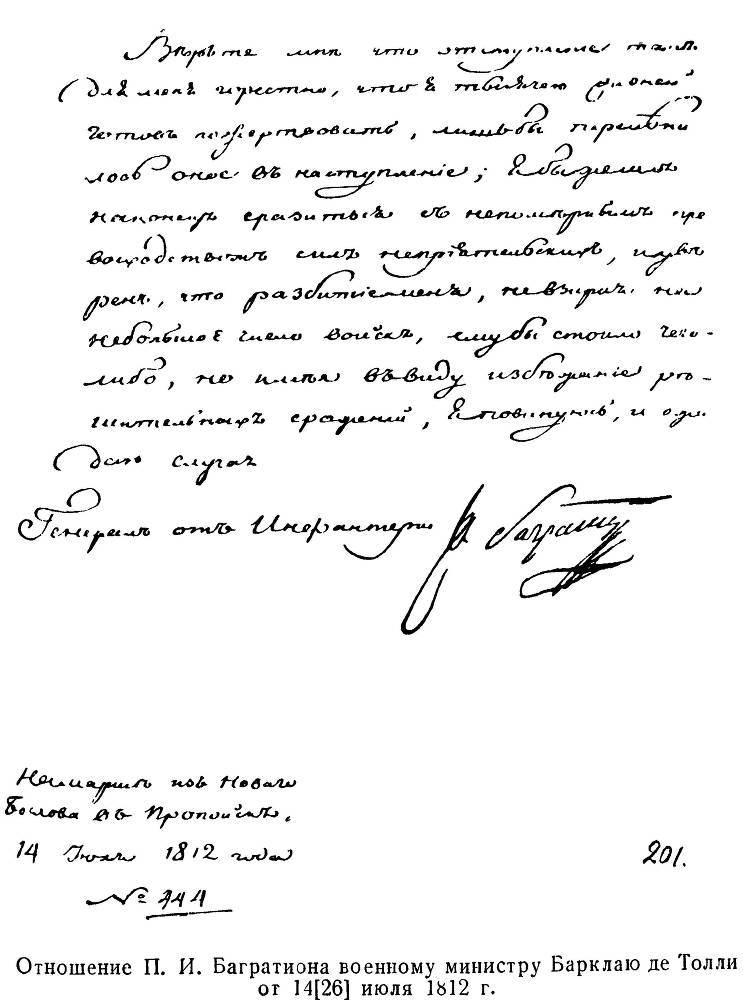 Верьте мне что отступление так
для меня грустно, что я тысячею жизней
готов пожертвовать, лишь бы переменилось
лось оное въ наступленіе; я бы желалъ
наконецъ сразиться съ непомернымъ пре
восходствомъ силъ непріятельскихъ, увѣ
ренъ, что разбитіе меня, не взирая на
небольшое число войскъ, ему бы стоило чего-
либо, но имея въ виду избежаніе рѣ-
шительныхъ сраженій, я повинуюсь, и ожи
даю случая
Генералъ отъ Инфантеріи К Баграти
На маршѣ изъ Новаго
Быхова въ Пропойскъ.
14 Июля 1812 года
201.
№ 444
Отношение П. И. Багратиона военному министру Барклаю де Толли
от 14[26] июля 1812 г.